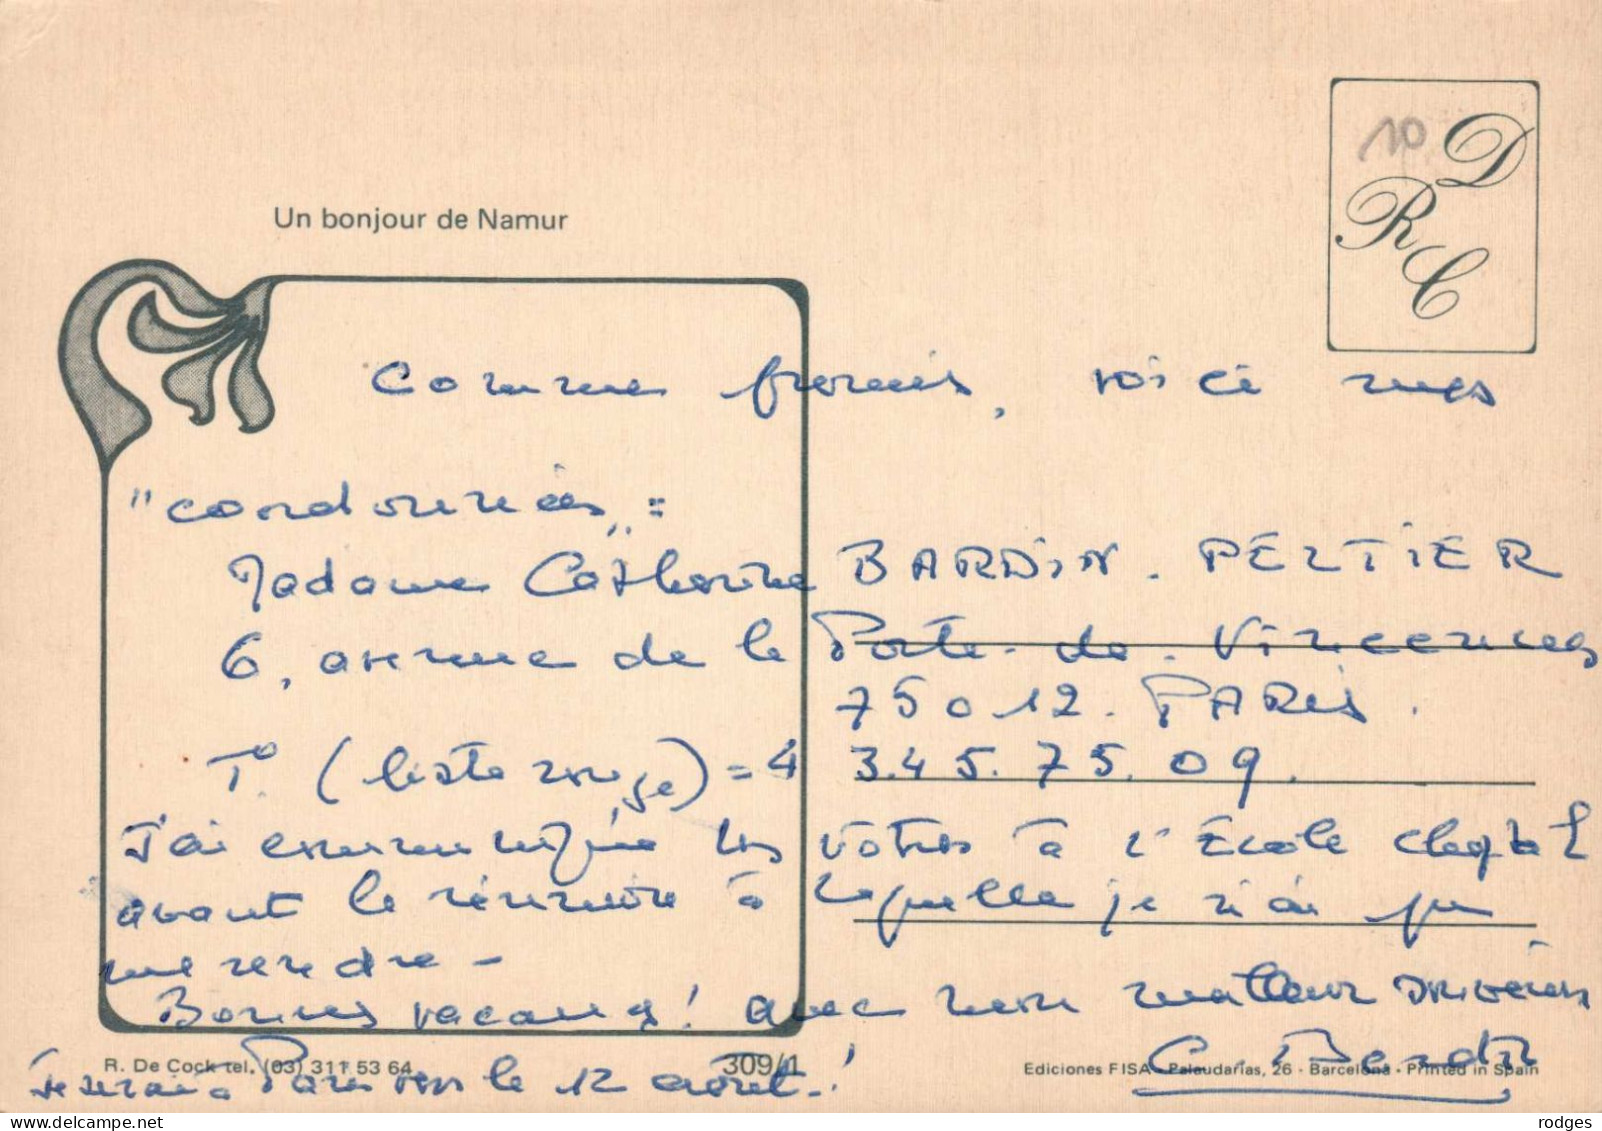 10
D
R
C
Un bonjour de Namur
Comme promis, voici mes
"cordonnées" =
Madame Catherine BARDIN. PELTIER
6, avenue de la Porte de Vincennes
75012. PARIS.
T° (liste rouge) = 4 3.45.75.09.
J'ai communiqué les vôtres à l'École
avant la réunion à laquelle je n'ai pu
me rendre -
Bonnes vacances! avec mon meilleur souvenir
C. Bardin
Je serai à Paris vers le 12 août.!
R. De Cock tel. (03) 311 53 64
309/1
Ediciones FISA - Palaudarias, 26 - Barcelona - Printed in Spain
rodges